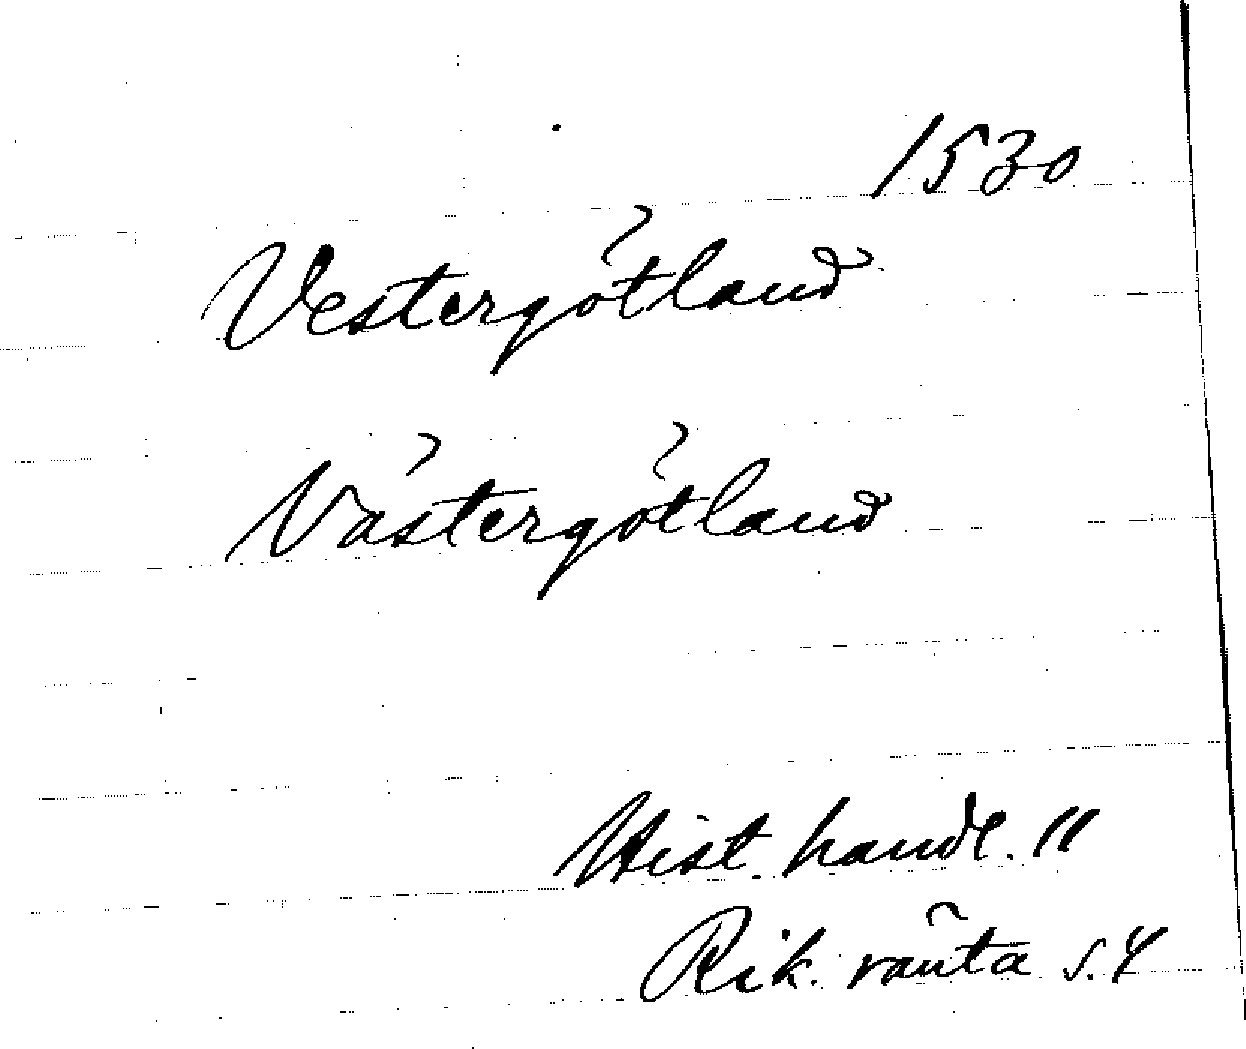 1530
Vestergötland
Västergötland
Hist. handl. 11
Rik. ränta s. 4